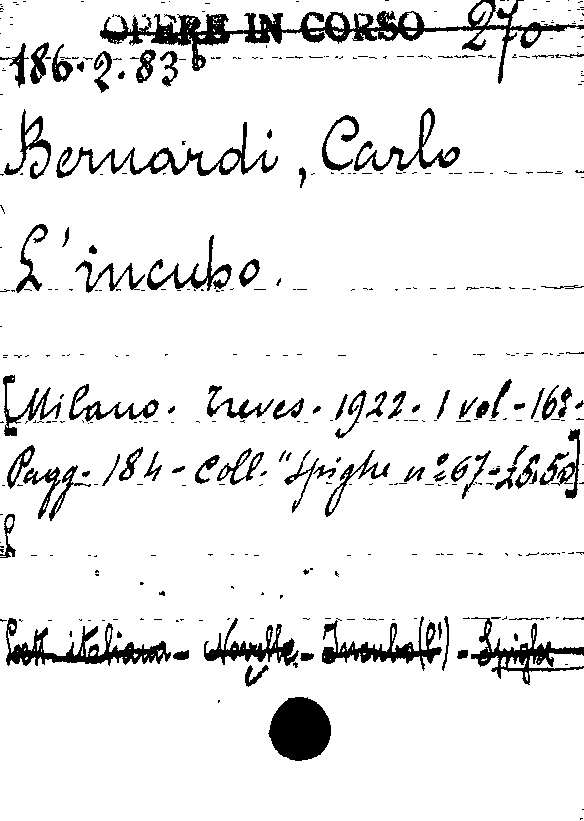 OPERE IN CORSO 270
186.2.83 b
Bernardi, Carlo
L'incubo.
[Milano. Treves. 1922. 1 vol - 16º.
Pagg. 184 - Coll. "Spighe nº 67 - £ 5.50]
L
Lett italiana - Novelle - Incubo (L') - Spighe